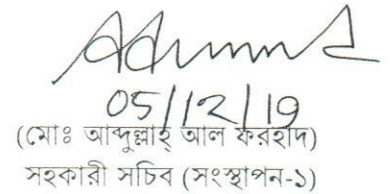 05/12/19
(মোঃ আব্দুল্লাহ্ আল ফরহাদ)
সহকারী সচিব (সংস্থাপন-১)